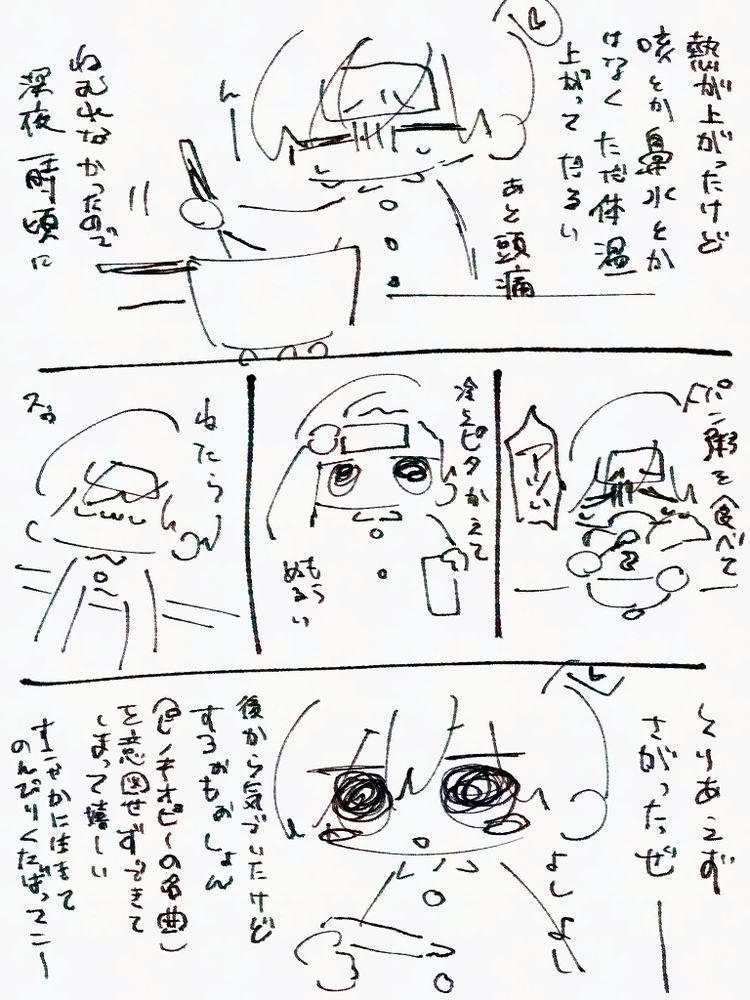 熱が上がったけど
咳とか鼻水とか
はなく ただ体温
上がって だるい
あと頭痛
んー
ねむれなかったので
深夜一時頃に
パン粥を食べて
アツい
冷えピタかえて
もう
ぬるい
ねたら
スゥ
とりあえず
さがったぜー
よしよし
後から気づいたけど
すろぉもぉしょん
(ピノキオピーの名曲)
を意図せずできて
しまって嬉しい
すこやかに生きて
のんびりくたばってこー